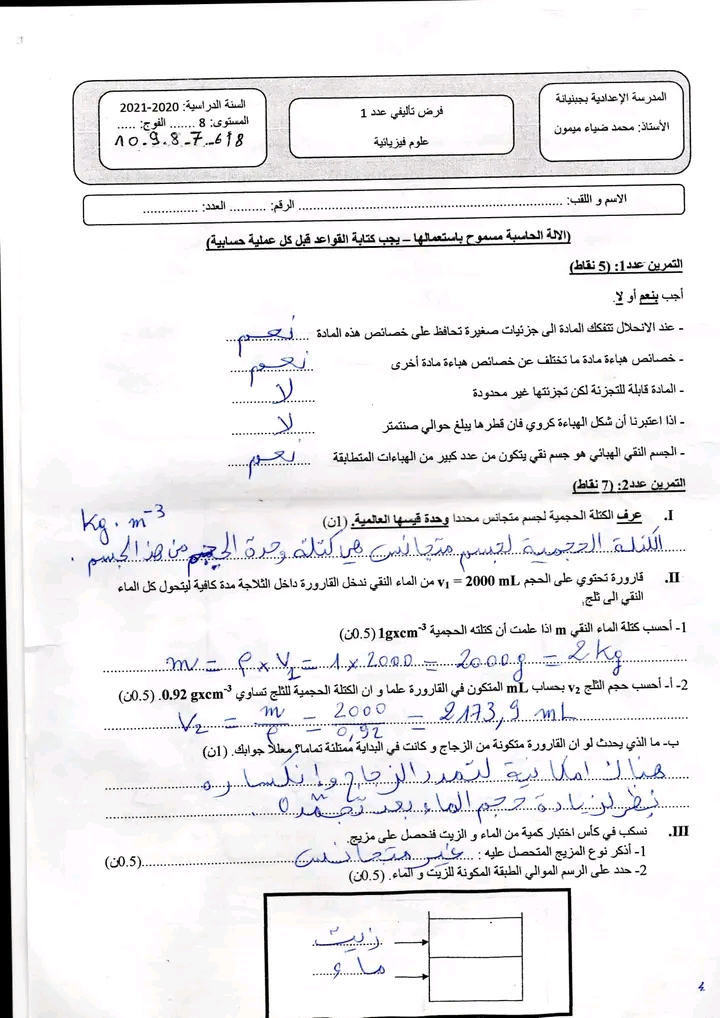 المدرسة الإعدادية بجبنيانة
الأستاذ: محمد ضياء ميمون
فرض تأليفي عدد 1
علوم فيزيائية
السنة الدراسية: 2020-2021
المستوى: 8 ....... الفوج: .....
10.9.8.7.6أ8
الاسم و اللقب: .................................................... الرقم: .......... العدد: ...............
(الالة الحاسبة مسموح باستعمالها – يجب كتابة القواعد قبل كل عملية حسابية)
التمرين عدد1: (5 نقاط)
أجب بنعم أو لا.
- عند الانحلال تتفكك المادة الى جزئيات صغيرة تحافظ على خصائص هذه المادة نعم
- خصائص هباءة مادة ما تختلف عن خصائص هباءة مادة أخرى نعم
- المادة قابلة للتجزئة لكن تجزئتها غير محدودة لا
- اذا اعتبرنا أن شكل الهباءة كروي فان قطرها يبلغ حوالي صنتمتر لا
- الجسم النقي الهبائي هو جسم نقي يتكون من عدد كبير من الهباءات المتطابقة نعم
التمرين عدد2: (7 نقاط)
I. عرف الكتلة الحجمية لجسم متجانس محددا وحدة قيسها العالمية. (1ن) kg.m⁻³
الكتلة الحجمية لجسم متجانس هي كتلة وحدة الحجم من هذا الجسم.
II. قارورة تحتوي على الحجم v₁ = 2000 mL من الماء النقي ندخل القارورة داخل الثلاجة مدة كافية ليتحول كل الماء
النقي الى ثلج.
1- أحسب كتلة الماء النقي m اذا علمت أن كتلته الحجمية 1gxcm⁻³ (0.5ن)
m = ρ x V₁ = 1 x 2000 = 2000g = 2kg
2- أ- أحسب حجم الثلج v₂ بحساب mL المتكون في القارورة علما و ان الكتلة الحجمية للثلج تساوي 0.92 gxcm⁻³. (0.5ن)
V₂ = m/ρ = 2000/0,92 = 2173,9 mL
ب- ما الذي يحدث لو ان القارورة متكونة من الزجاج و كانت في البداية ممتلئة تماما؟ معللا جوابك. (1ن)
هناك امكانية لتمدد الزجاج وإنكساره
نظرلزيادة حجم الماء بعد تجمّده.
III. نسكب في كأس اختبار كمية من الماء و الزيت فنحصل على مزيج.
1- أذكر نوع المزيج المتحصل عليه : غير متجانس (0.5ن)
2- حدد على الرسم الموالي الطبقة المكونة للزيت و الماء. (0.5ن)
زيت
ماء